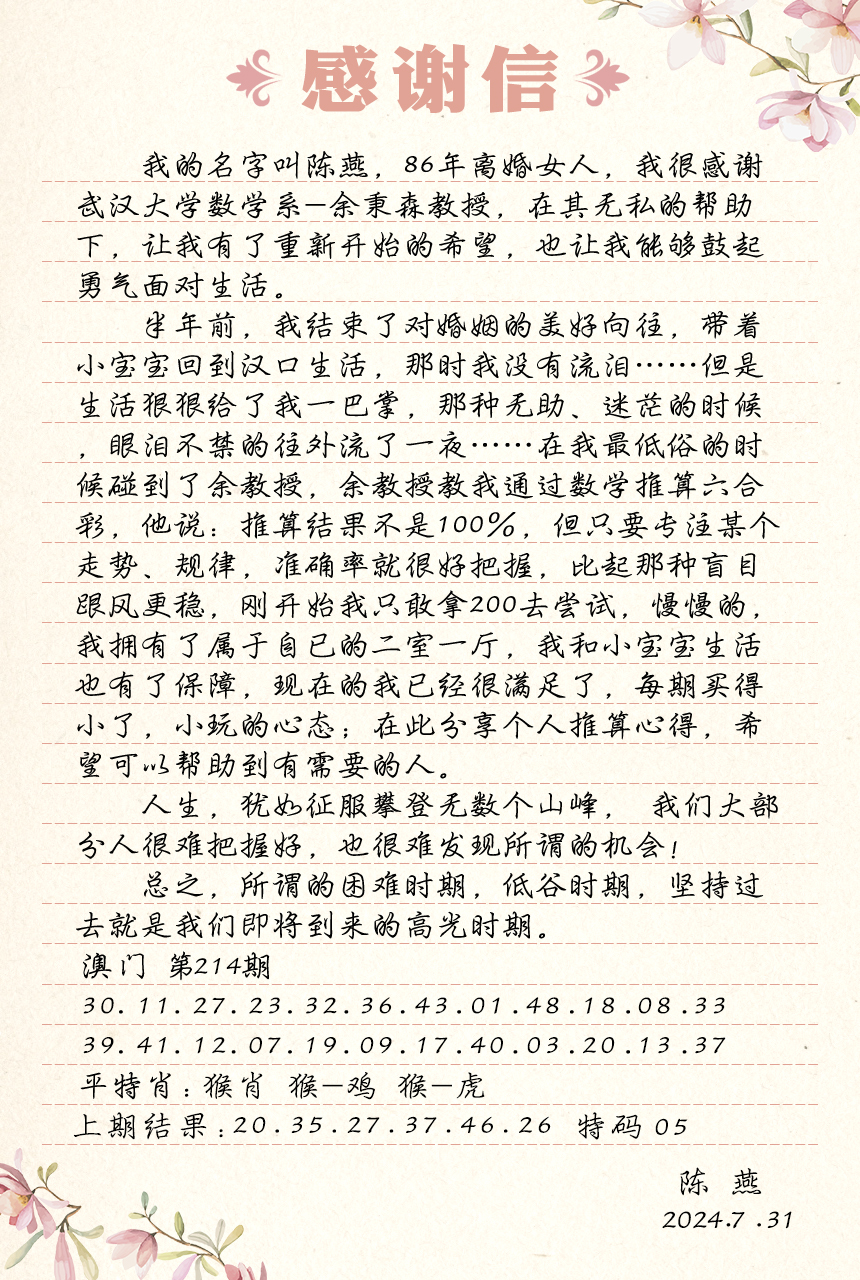 感谢信
我的名字叫陈燕，86年离婚女人，我很感谢
武汉大学数学系—余秉森教授，在其无私的帮助
下，让我有了重新开始的希望，也让我能够鼓起
勇气面对生活。
半年前，我结束了对婚姻的美好向往，带着
小宝宝回到汉口生活，那时我没有流泪……但是
生活狠狠给了我一巴掌，那种无助、迷茫的时候
，眼泪不禁的往外流了一夜……在我最低俗的时
候碰到了余教授，余教授教我通过数学推算六合
彩，他说：推算结果不是100%，但只要专注某个
走势、规律，准确率就很好把握，比起那种盲目
跟风更稳，刚开始我只敢拿200去尝试，慢慢的，
我拥有了属于自已的二室一厅，我和小宝宝生活
也有了保障，现在的我已经很满足了，每期买得
小了，小玩的心态；在此分享个人推算心得，希
望可以帮助到有需要的人。
人生，犹如征服攀登无数个山峰， 我们大部
分人很难把握好，也很难发现所谓的机会！
总之，所谓的困难时期，低谷时期，坚持过
去就是我们即将到来的高光时期。
澳门 第214期
30.11.27.23.32.36.43.01.48.18.08.33
39.41.12.07.19.09.17.40.03.20.13.37
平特肖：猴肖 猴—鸡 猴—虎
上期结果：20.35.27.37.46.26 特码 05
陈 燕
2024.7.31